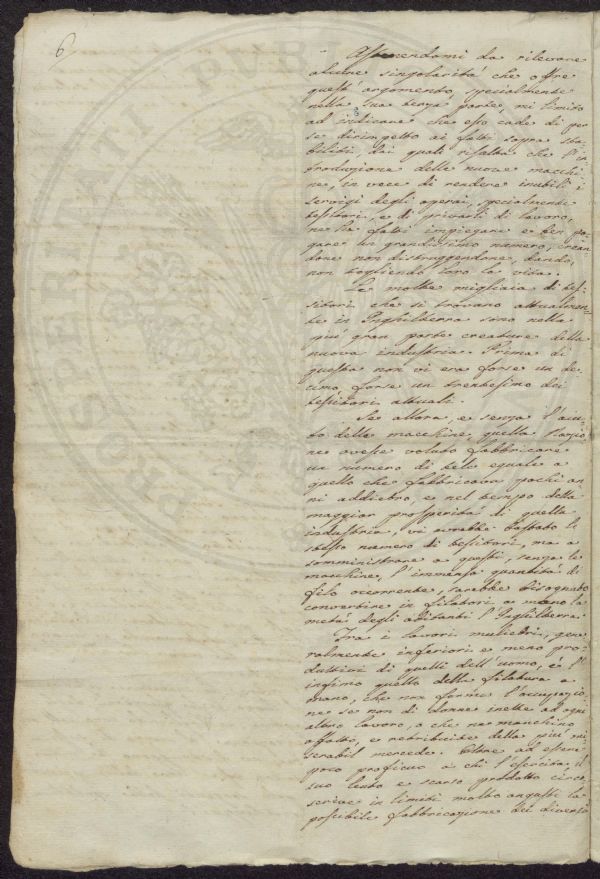 6
Astenendomi da rilevare
alcune singolarità che offre
quest'argomento, specialmente
nella sua terza parte, mi limito
ad indicare che esso cade di per
se dirimpetto ai fatti sopra sta-
biliti, dai quali risalta che l'in-
troduzione delle nuove macchi-
ne, in vece di rendere inutili i
servigi degli operai, specialmente
tessitori, e di privarli di lavoro,
ne ha fatti impiegare e ben pa-
gare un grandissimo numero, crean-
done non distruggendone, dando,
non togliendo loro la vita.
Le molte migliaia di tes-
sitori che si trovano attualmen-
te in Inghilterra sono nella
più gran parte creature della
nuova industria. Prima di
questa non vi era forse un de-
cimo forse un trentesimo dei
tessitori attuali.
Se allora, e senza l'aiu-
to delle macchine, quella Nazio-
ne avesse voluto fabbricare
un numero di tele eguale a
quello che fabbricava pochi an-
ni addietro, e nel tempo della
maggior prosperità di quella
industria, vi avrebbe bastato lo
stesso numero di tessitori, ma a
somministrare a questi, senza le
macchine, l'immensa quantità di
filo occorrente, sarebbe bisognato
convertire in filatori a mano la
metà degli abitanti l'Inghilterra.
Tra i lavori muliebri, gene-
ralmente inferiori e meno pro-
duttivi di quelli dell'uomo, è l'
infimo quello della filatura a
mano, che non forma l'occupazio-
ne se non di donne inette ad ogni
altro lavoro, o che ne manchino
affatto, e retribuite della più mi-
serabil mercede. Oltre ad essere
poco proficuo a chi l'esercita, il
suo lento e scarso prodotto circo-
scrive in limiti molto angusti la
possibile fabbricazione dei diversi
PROSPERITATI PUBLI